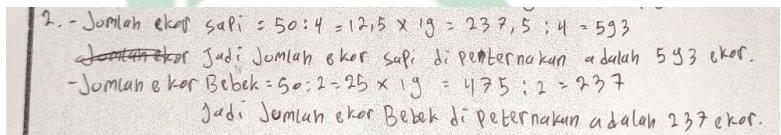 2. - Jomlah ekor sapi = 50 : 4 = 12,5 x 19 = 237,5 : 4 = 593
Jadi Jomlah ekor sapi di penternakan adalah 593 ekor.
- Jomlah ekor Bebek = 50 : 2 = 25 x 19 = 475 : 2 = 237
Jadi Jomlah ekor Bebek di peternakan adalah 237 ekor.